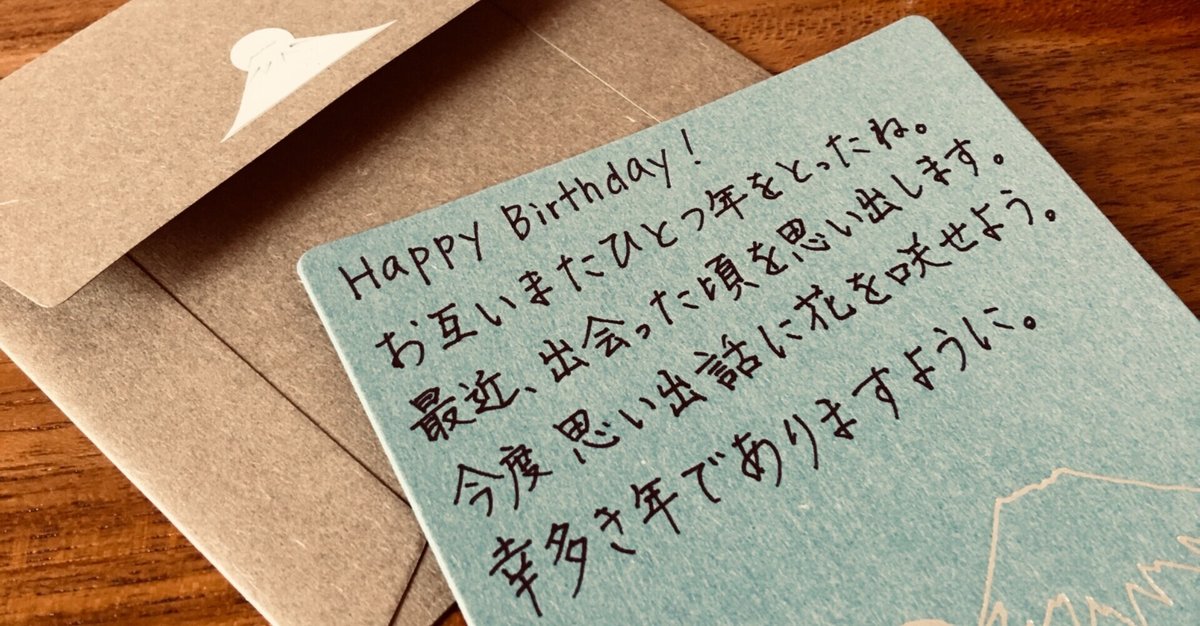 Happy Birthday!
お互いまたひとつ年をとったね。
最近、出会った頃を思い出します。
今度思い出話に花を咲せよう。
幸多き年でありますように。